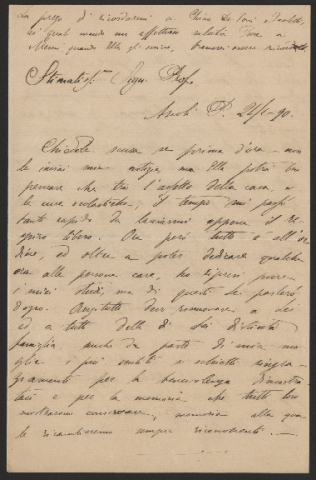 La prego di ricordarmi a Chiar. De Toni
ai quali mando un affettuoso saluto. Dove a
quando Ella gli scrive, bramerei essere ricordato
Stimatis. Sign. Prof.
Ascoli P. 21/1-90.
Chiedole scusa se prima d'ora non
le inviai mie notizie, ma Ella potrà ben
pensare che tra l'assetto della casa, e
le cure scolastiche, il tempo mi passò
tanto rapido da lasciarmi appena il re-
spiro libero. Ora però tutto è all'or
dine, ed oltre a poter dedicare qualche
ora alle persone care, ho ripreso pure
i miei studi ma di questi Le parlerò
dopo. Anzitutto devo rinnovare a Lei
ed a tutti della di Lei distinta
famiglia anche da parte di mia mo
glie i più sentiti e schietti ringra-
ziamenti per la benevolenza dimostra
taci e per la memoria che tutti loro
mostrarono conservare, memoria alla qua
le ricambieremo sempre riconoscenti. —